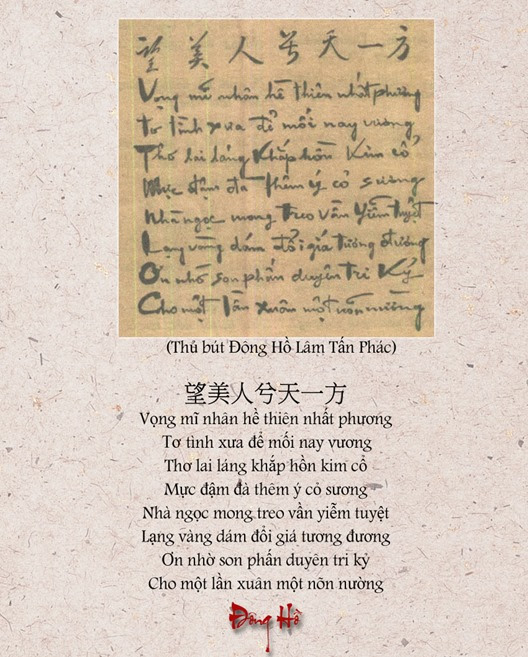 望美人兮天一方
Vọng mĩ nhân hề thiên nhất phương
Tơ tình xưa để mối nay vương
Thơ lai láng khắp hồn kim cổ
Mực đậm đà thêm ý cỏ sương
Nhà ngọc mong treo vần yiễm tuyệt
Lạng vàng dám đổi giá tương đương
Ơn nhờ son phấn duyên tri kỷ
Cho một lần xuân một nõn nường
(Thủ bút Đông Hồ Lâm Tấn Phác)
望美人兮天一方
Vọng mĩ nhân hề thiên nhất phương
Tơ tình xưa để mối nay vương
Thơ lai láng khắp hồn kim cổ
Mực đậm đà thêm ý cỏ sương
Nhà ngọc mong treo vần yiễm tuyệt
Lạng vàng dám đổi giá tương đương
Ơn nhờ son phấn duyên tri kỷ
Cho một lần xuân một nõn nường
Đông Hồ